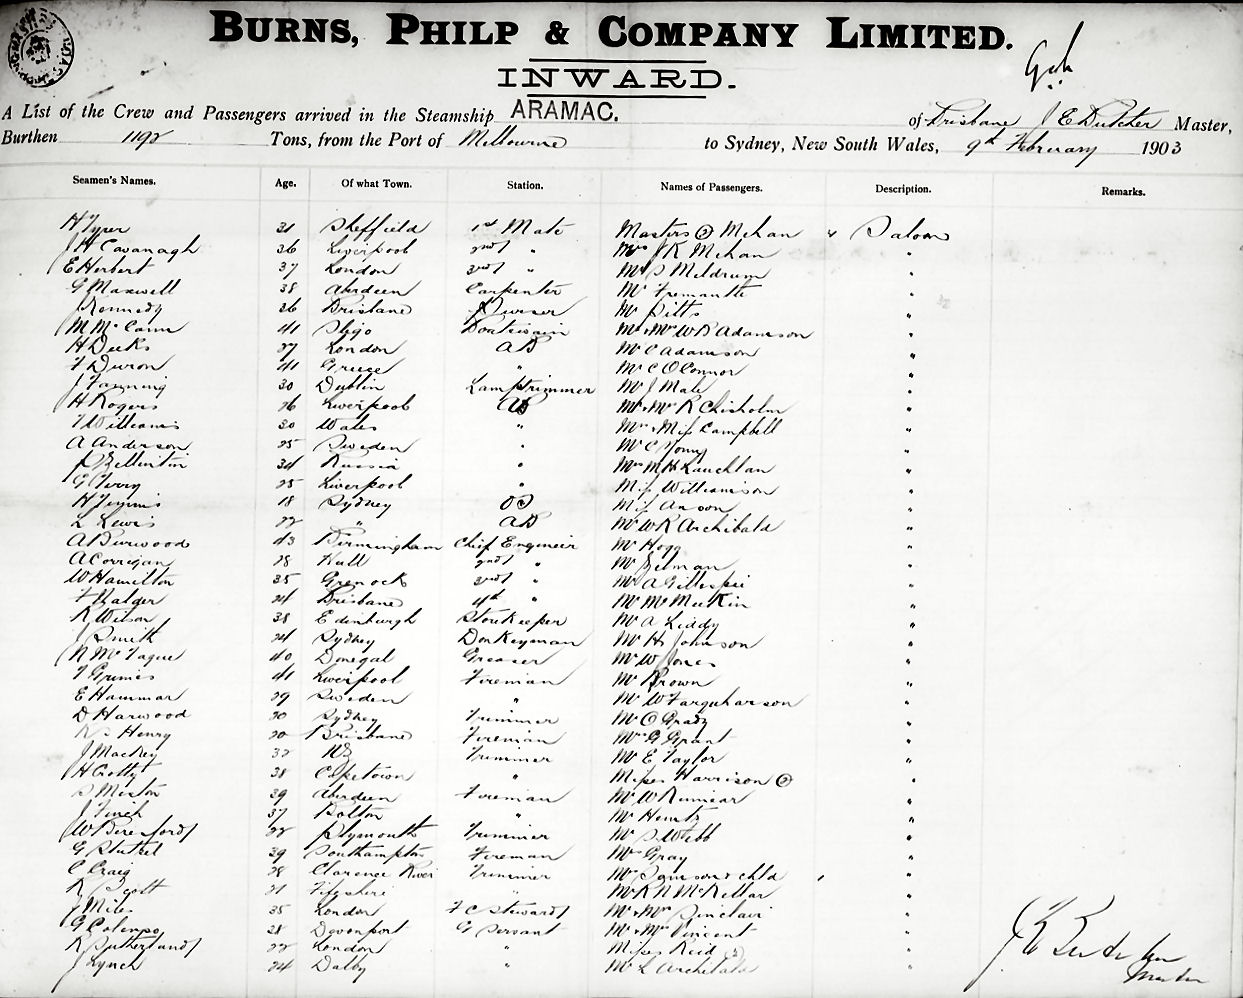 BURNS, PHILP & COMPANY LIMITED.
INWARD.
A List of the Crew and Passengers arrived in the Steamship ARAMAC. of Brisbane J E Butcher Master,
Burthen 1192 Tons, from the Port of Melbourne to Sydney, New South Wales, 9th February 1903
Seamen's Names. Age. Of what Town. Station. Names of Passengers. Description. Remarks.
H Tyrer 31 Sheffield 1st Mate Masters (2) Mehan " Saloon
J H Cavanagh 36 Liverpool 2nd " Mrs J K Mehan "
E Herbert 37 London 3rd " Mr S Meldrum "
G Maxwell 38 Aberdeen Carpenter Mr Fremantle "
Kennedy 26 Brisbane Purser Mr Pitts "
M McCann 41 Sligo Boatswain Mr & Mrs W B Adamson "
H Deeks 27 London AB Mr C Adamson "
F Duron 41 Greece " Mr C O'Connor "
J Fanning 30 Dublin Lamptrimmer Mr J Male "
H Rogers 26 Liverpool AB Mr & Mrs R Chisholm "
T Williams 30 Wales " Mrs & Miss Campbell "
A Anderson 25 Sweden " Mr C Young "
34 Russia " Mrs M H Lauchlan "
G Terry 25 Liverpool " Miss Williamson "
H Timmis 18 Sydney OS Miss Anson "
L Lewis 22 " AB Mr W R Archibald "
A Burwood 43 Birmingham Chief Engineer Mr Hogg "
A Corrigan 28 Hull 2nd " Mr Gilman "
W Hamilton 35 Greenock 3rd " Mr A Gillespie "
F Balder 24 Brisbane 4th " Mr McMeekin "
R Wilson 38 Edinburgh Storekeeper Mr A Liddy "
J Smith 24 Sydney Donkeyman Mr H Johnson "
N McTague 40 Donegal Greaser Mr W Jones "
T Grimes 41 Liverpool Fireman Mr Brown "
E Hammar 29 Sweden " Mr W Farquharson "
D Harwood 20 Sydney Trimmer Mr O'Grady "
Henry 20 Brisbane Fireman Mrs G Grant "
J Mackey 32 NZ Trimmer Mr E Taylor "
H Crotty 38 Capetown " Misses Harrison (2) "
S Miston 39 Aberdeen Fireman Mr W Rumsear "
J Finch 37 Bolton " Mr Heintz "
W Beresford 22 Plymouth Trimmer Mr S Webb "
G Stutzel 39 Southampton Fireman Mrs Gray "
C Craig 28 Clarence River Trimmer Mrs Samson & chld "
R Scott 21 Fifeshire " Mr R N McKellar "
J Miles 35 London F C Steward Mr & Mrs Sinclair "
G Colenso 28 Devonport G Servant Mr & Mrs Vincent "
R Sutherland 22 London " Misses Reid (2) "
J Lynch 24 Dalby " Mr L Archibald "
J E Butcher
Master